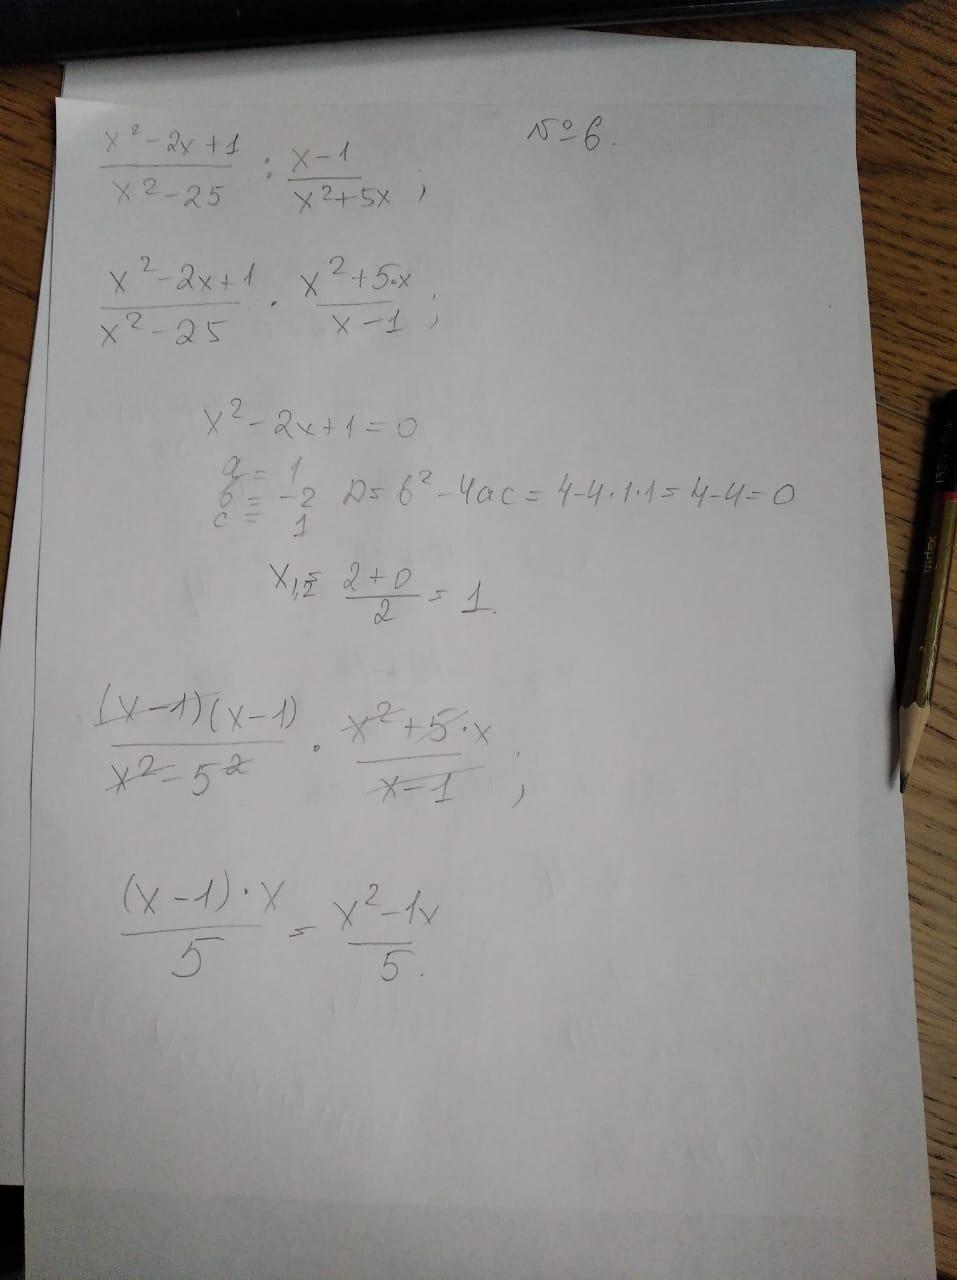 №6.
x²-2x+1 / x²-25 : x-1 / x²+5x ;
x²-2x+1 / x²-25 · x²+5·x / x-1 ;
x²-2x+1=0
a = 1
b = -2
c = 1
D= b²-4ac = 4-4·1·1= 4-4=0
x1,2= 2+0 / 2 = 1.
(x-1)(x-1) / x²-5² · x²+5·x / x-1 ;
(x-1)·x / 5 = x²-1x / 5.
index